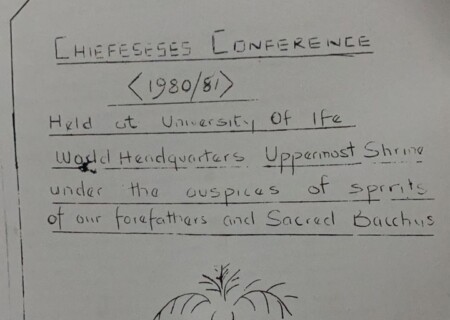 CHIEFESESES CONFERENCE
<1980/81>
Held at University Of Ife
World Headquarters Uppermost Shrine
under the auspices of spirits
of our forefathers and Sacred Bacchus